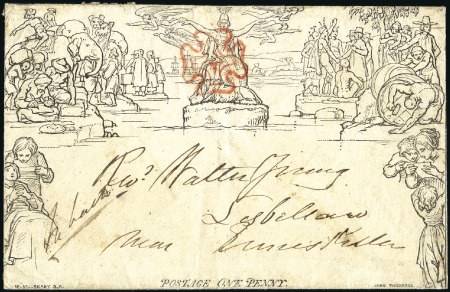 Revd. Walter Young
Lisbellaw
near Enniskillen
W. MULREADY. R.A.
POSTAGE ONE PENNY.
JOHN THOMPSON.